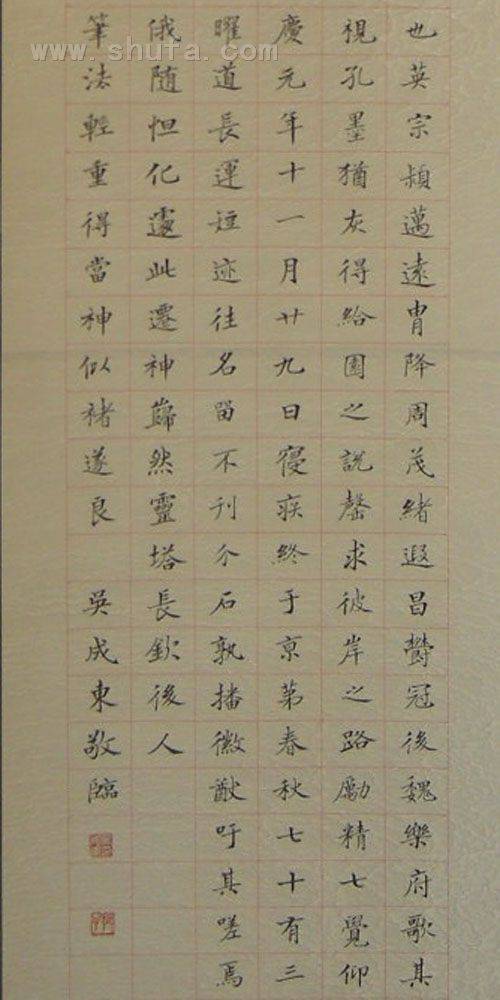 也英宗穎邁遠胄降周茂緒遐昌欝冠後魏樂府歌其
視孔墨猶灰得給園之說罄求彼岸之路勵精七覺仰
慶元年十一月廿九日寑疾終于京第春秋七十有三
曜道長運短迹往名留不刊介石孰播徽猷吁其嗟焉
俄隨怛化遽此遷神巋然靈塔長欽後人
筆法輕重得當神似褚遂良 吳成東敬臨
www.shufa.com